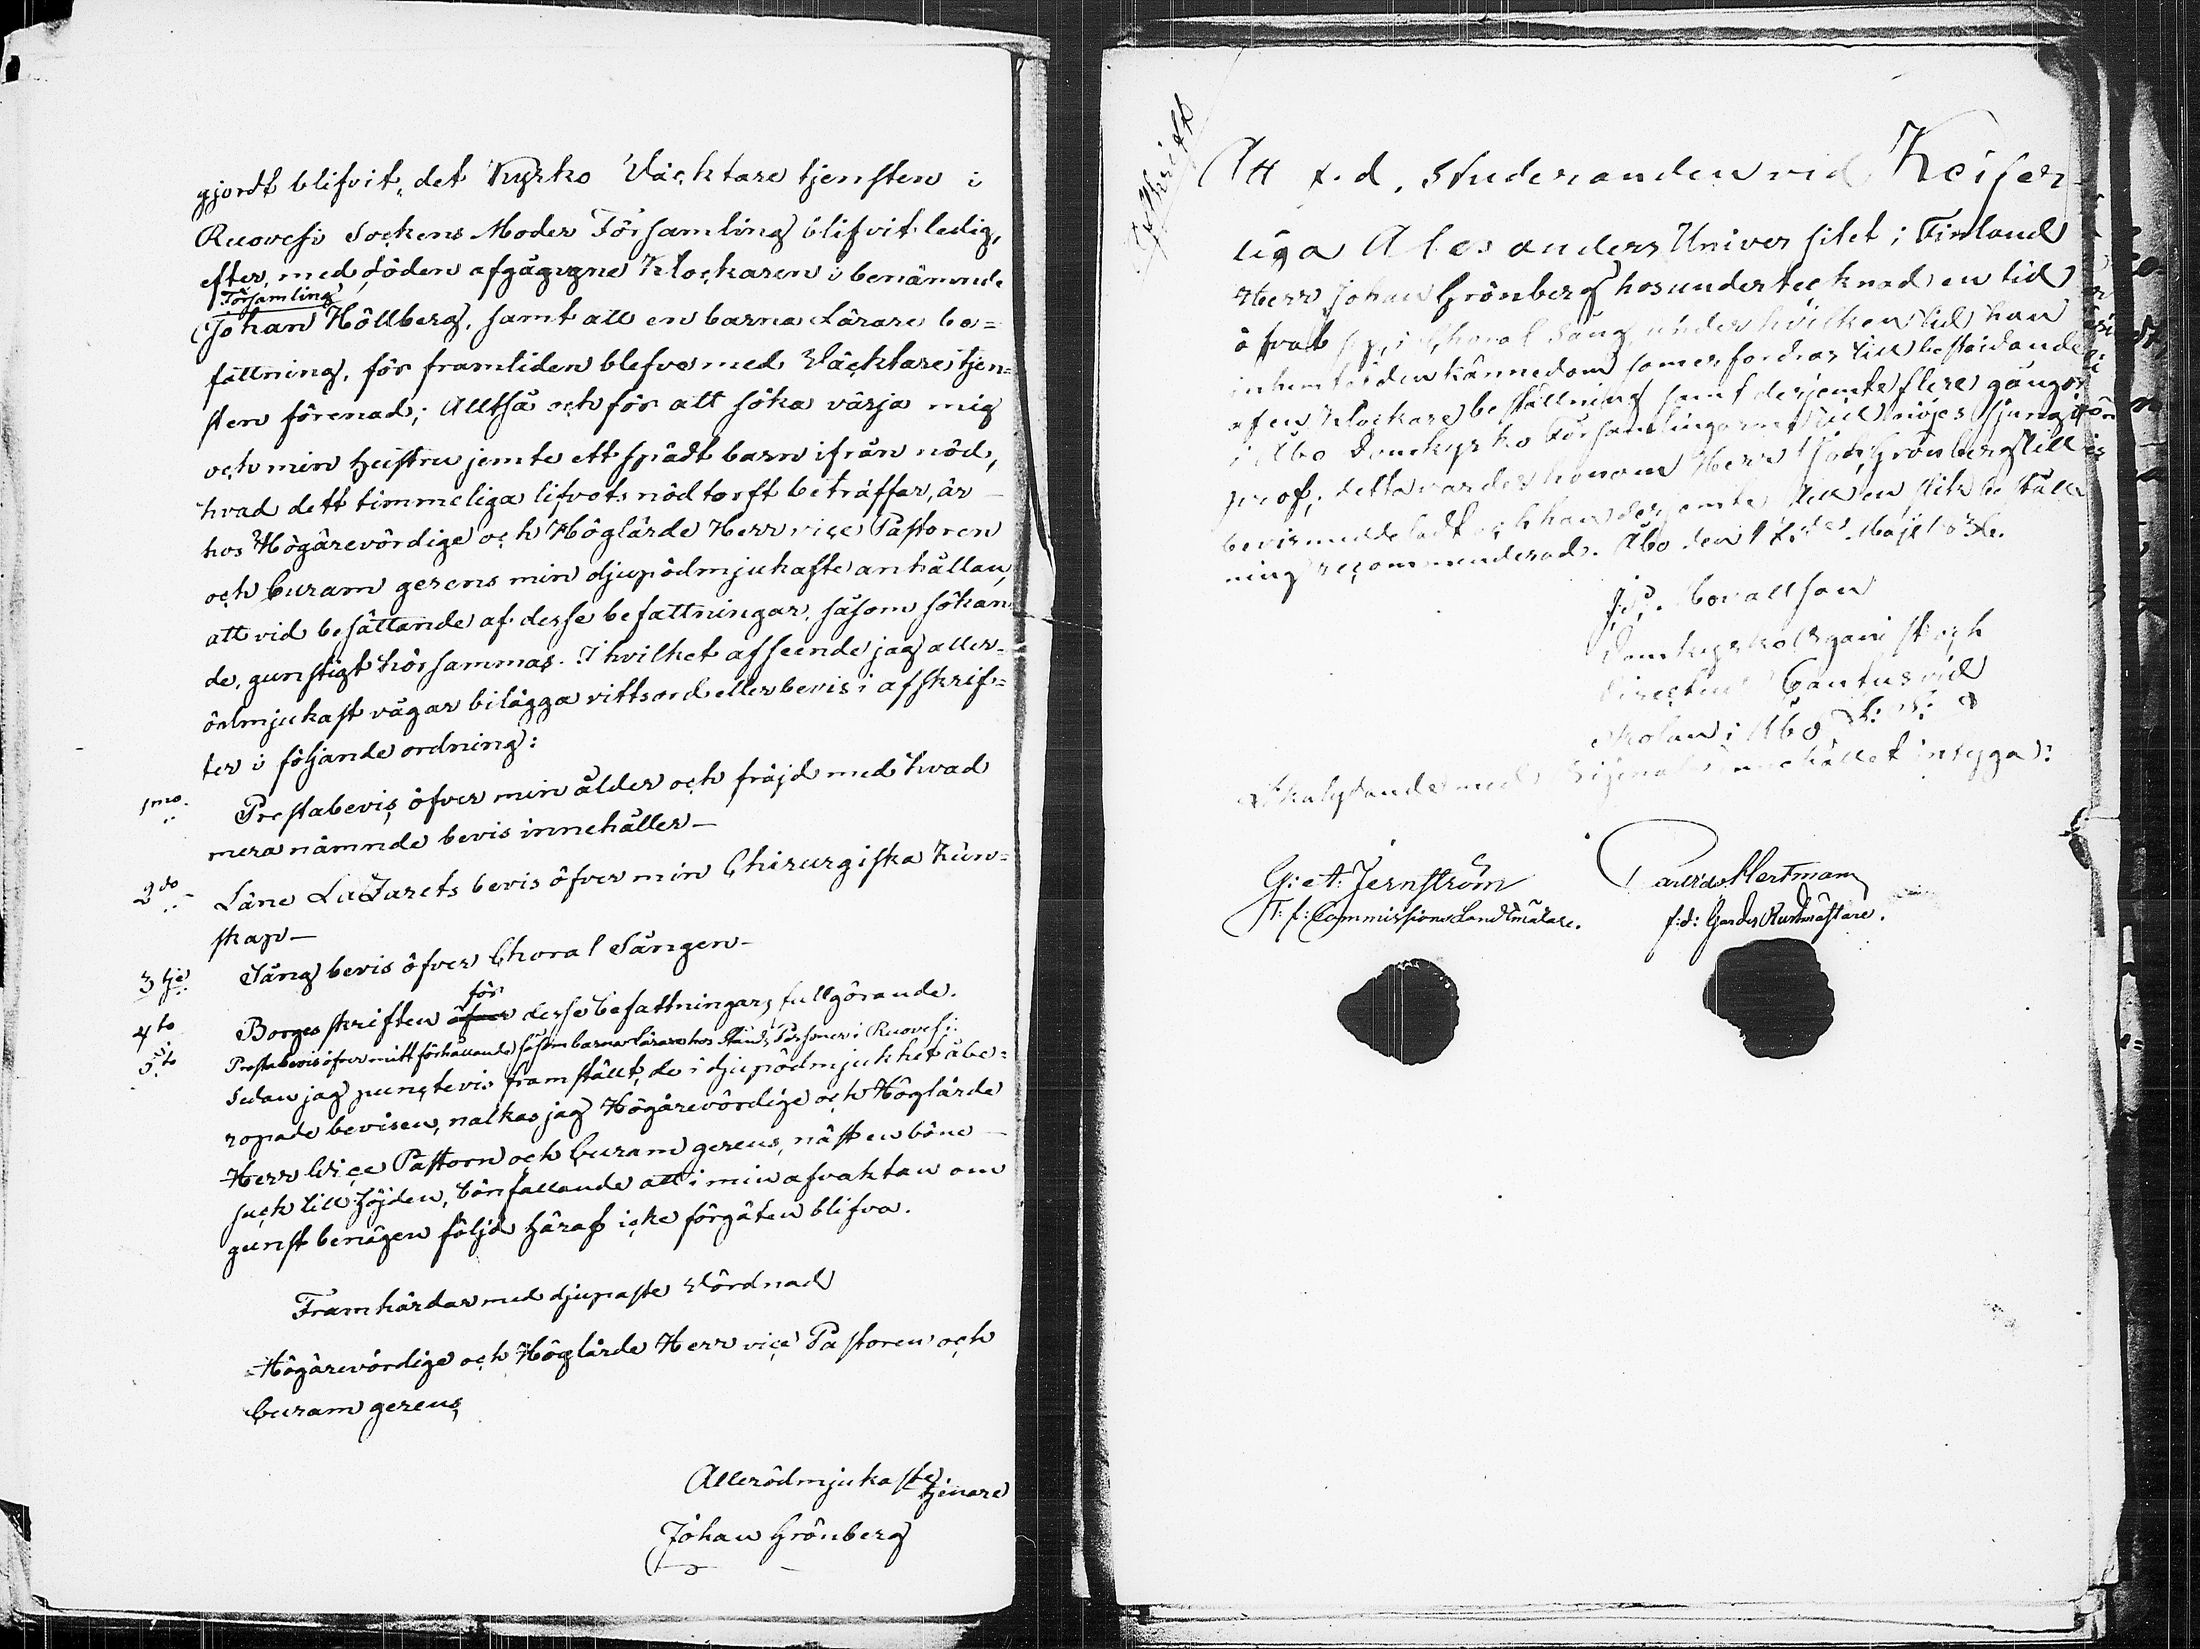 gjordt blifvit, det Kyrko Väcktare tjensten i
Ruovesi Sockens Moder Församling blifvit ledig,
efter, med döden afgågugne Klockaren i benämnde
Församling
Johan Höllberg, samt att en barna Lärare be=
fattning, för framtiden blefve med Väcktare tjen=
sten förenad; Alltså och för att söka värja mig
och min hustru jemte ett spädt barn ifrån nöd,
hvad dett timmeliga lifvets nödtorft beträffar, är
hos Högärevördige och Höglärde Herr vice Pastoren
och Curam gerens min djupödmjukaste anhållan,
att vid besättande af desse befattningar, såsom sökan
de, gunstigt hörsammas. I hvilket afseende jag aller=
ödmjukast vågar bilägga vittsord eller bevis i afskrif=
ter i följande ordning:
1mo. Prestabevis öfver min ålder och fräjd med hvad
mera nämnde bevis innehåller —
2do Läne LaZarets bevis öfver min Chirurgiska Kun=
skap —
3tje Sång bevis öfver Choral Sången —
för
4to Borges skriften öfver desse befattningars fullgörande.
5to Prestabevis öfver mitt förhållande såsom barna lärare hos Stånds Personer i Ruovesi.
Sedan jag punctevis framställt, de i djupödmjukhet åbe=
ropade bevisen, nalkas jag Högärevördige och Höglärde
Herr Vice Pastorn och Curam gerens, näst en böne
suck till höjden, bönfallande att i min afvaktan om
gunst benägen följd häraf icke förgäten blifva.
Framhärdar med djupaste Vördnad
Högärevördige och Höglärde Herr vice Pastoren och
Curam gerens,
Allerödmjukaste
tjenare
Johan Grönberg
Afskrift
Att f.d. Studeranden vid Keiser-
liga Alexanders Universitet i Finland
Herr Johan Grönberg hos undertecknad en tid
öfvat sig i Choral Sång, under hvilken tid han
inhemtat den kännedom som erfordras till bestridande
af en Klockare beställning samt derjemte flere gånger
i Åbo Domkyrko Församlingarne till nöjes sjungit
prof; detta varder honom Herr Joh. Grönberg till
bevis meddeladt och han derjemte till en slik beställ
ning recommenderad. Åbo den Maji
Domkyrko Organist och
Directeur Cantus vid
Skolan i Åbo
Lika lydande med Originalet innehållet intyga:
G: A: Jernström
T: f: Commissions Landtmätare.
Hertman
f:d: Gardes Rustmästare.